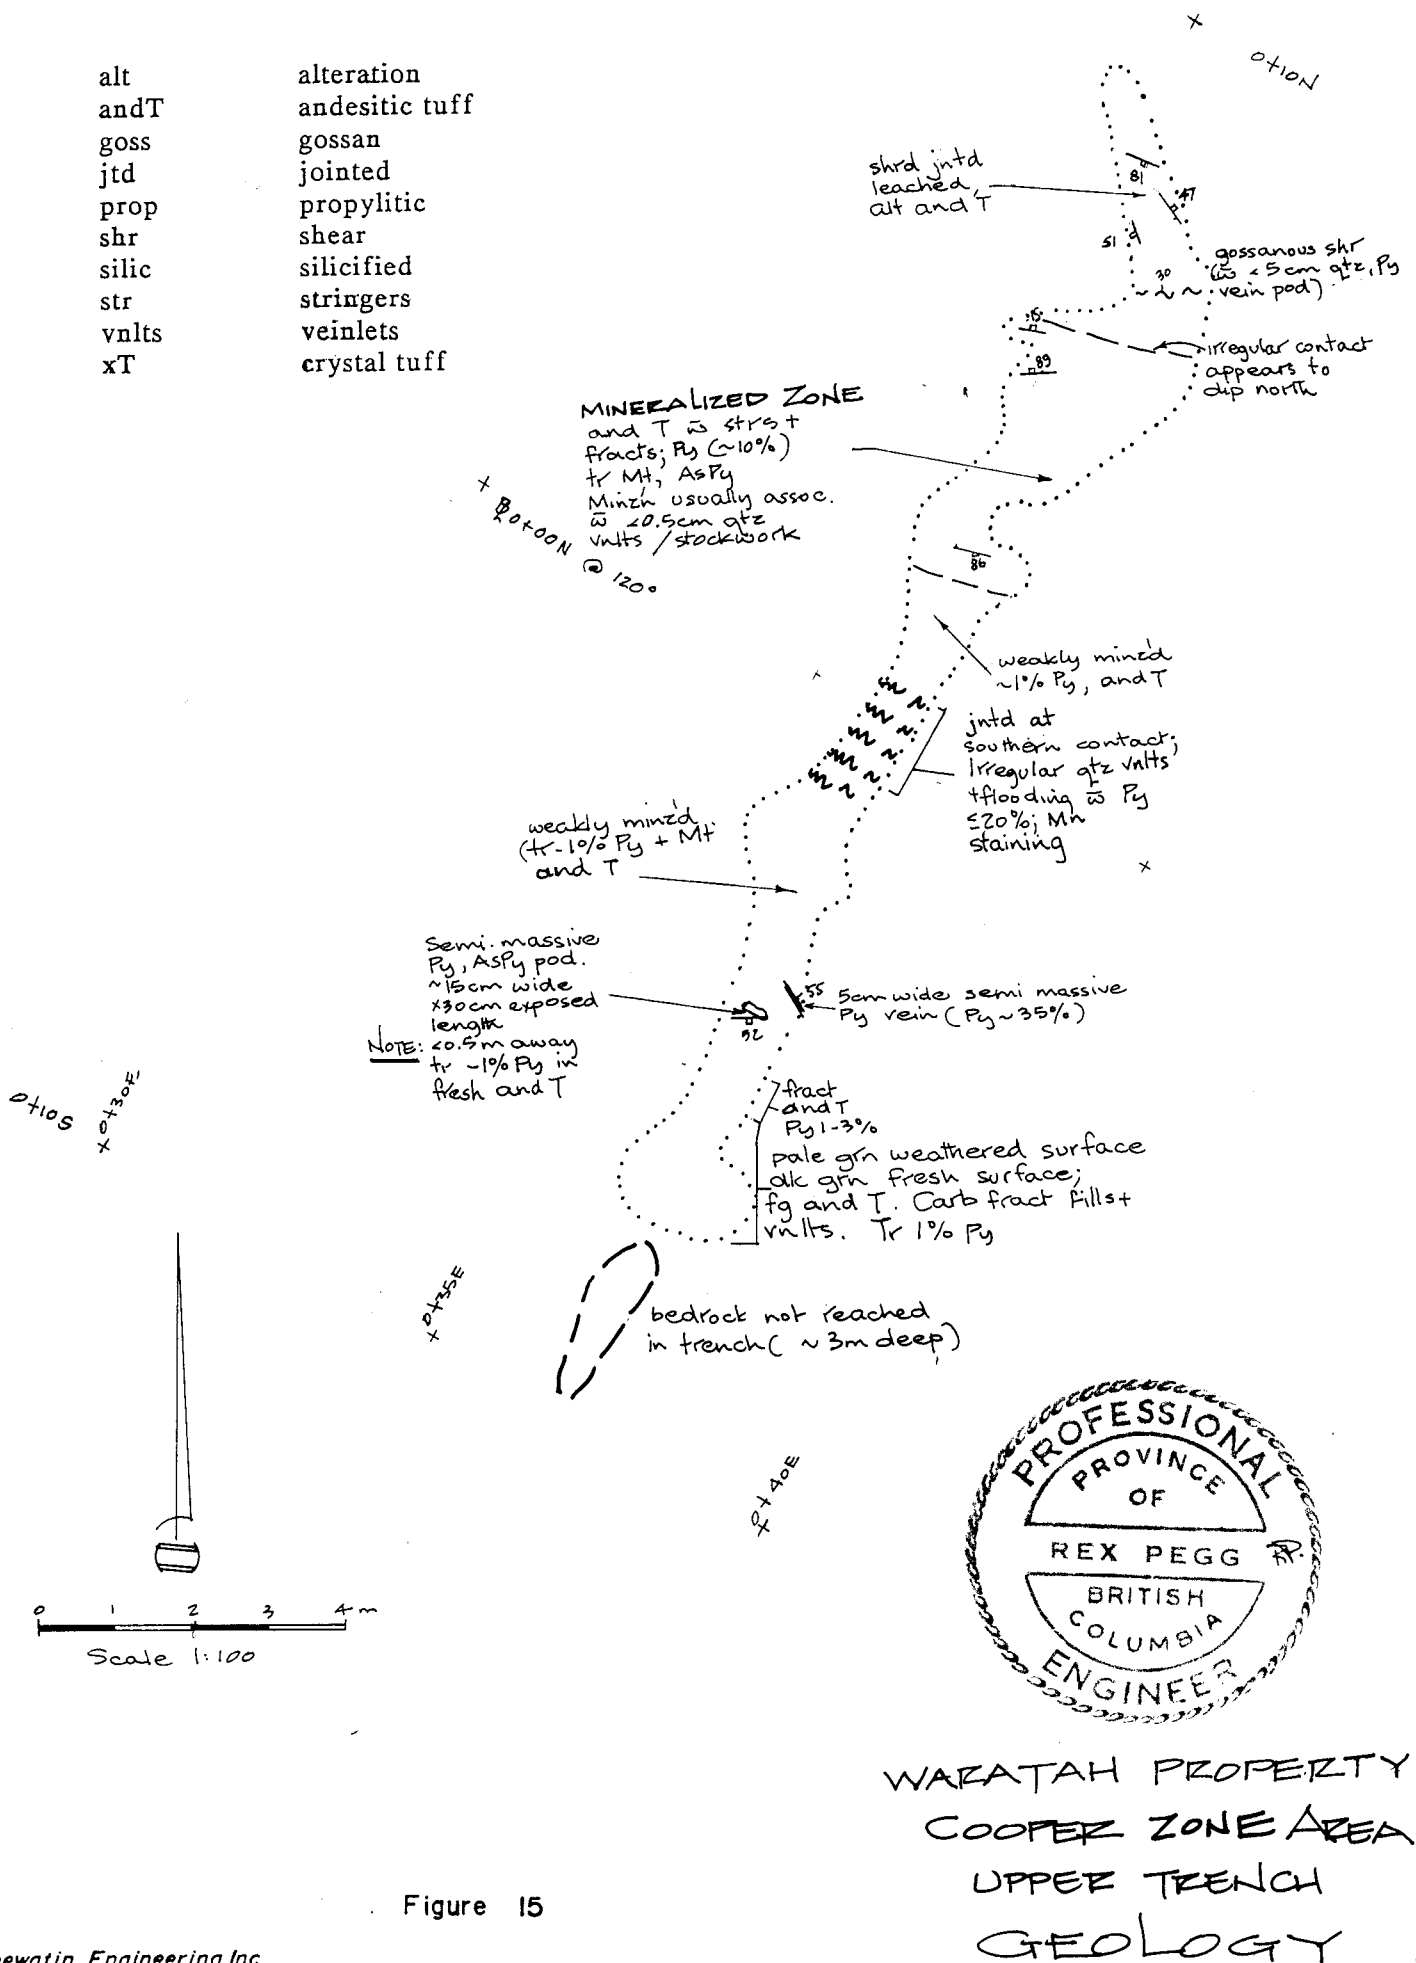 alt alteration
andT andesitic tuff
goss gossan
jtd jointed
prop propylitic
shr shear
silic silicified
str stringers
vnlts veinlets
xT crystal tuff
0+10N
shrd jntd
leached,
alt and T
81
47
51
30
gossanous shr
(w̄ <5cm qtz, Py
vein pod)
15
89
irregular contact
appears to
dip north
MINERALIZED ZONE
and T w̄ strs +
fracts; Py (~10%)
tr Mt, AsPy
Minzn usually assoc.
w̄ <0.5cm qtz
vnlts / stockwork
0+00N
@ 120°
86
weakly minz'd
~1% Py, and T
jntd at
southern contact;
Irregular qtz vnlts
+flooding w̄ Py
≤20%; Mn
staining
weakly minz'd
(tr-1% Py + Mt
and T
Semi-massive
Py, AsPy pod.
~15cm wide
x30cm exposed
length
NOTE: <0.5m away
tr -1% Py in
fresh and T
52
55
5cm wide semi massive
Py vein (Py ~35%)
fract
and T
Py 1-3%
pale grn weathered surface
dk grn fresh surface;
fg and T. Carb fract fills +
vnlts. Tr 1% Py
0+10S
0+30E
0+35E
bedrock not reached
in trench ( ~3m deep)
0+40E
0 1 2 3 4 m
Scale 1:100
PROFESSIONAL
PROVINCE
OF
REX PEGG
RP.
BRITISH
COLUMBIA
ENGINEER
WARATAH PROPERTY
COOPER ZONE AREA
UPPER TRENCH
GEOLOGY
Figure 15
Engineering Inc